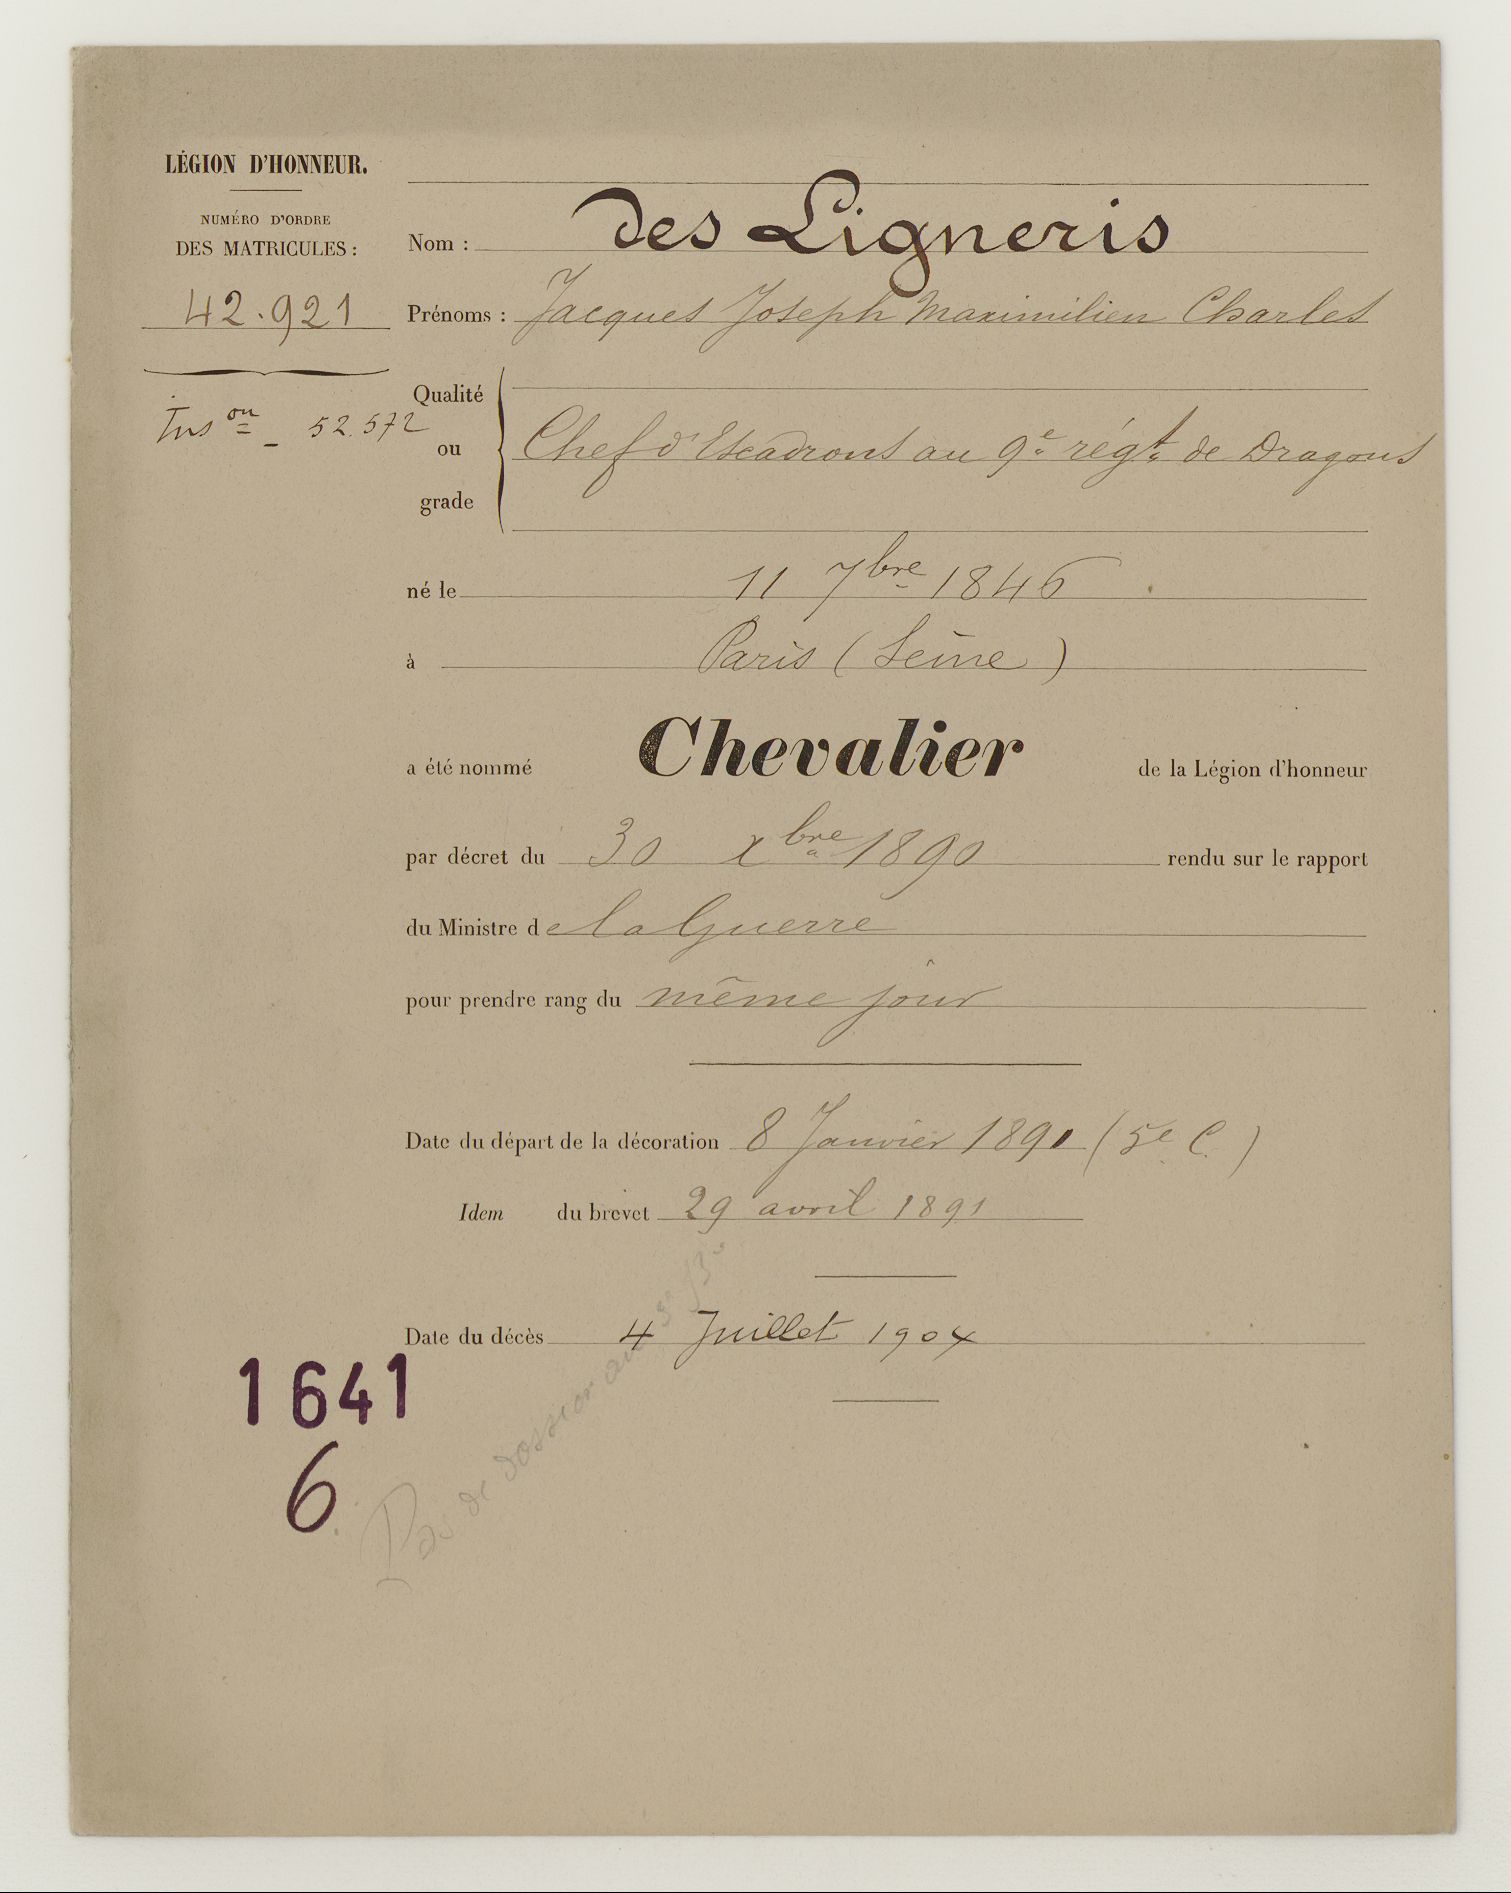 LÉGION D'HONNEUR.
NUMÉRO D'ORDRE
DES MATRICULES :
42.921
Ins on - 52.572
Nom : des Ligneris
Prénoms : Jacques Joseph Maximilien Charles
Qualité
ou
grade
Chef d'Escadrons au 9e régt de Dragons
né le 11 7bre 1846
à Paris (Seine)
a été nommé Chevalier de la Légion d'honneur
par décret du 30 Xbre 1890 rendu sur le rapport
du Ministre de la Guerre
pour prendre rang du même jour
Date du départ de la décoration 8 Janvier 1891 (5e C.)
Idem du brevet 29 avril 1891
Date du décès 4 Juillet 1904
1641
6
Pas de dossier au